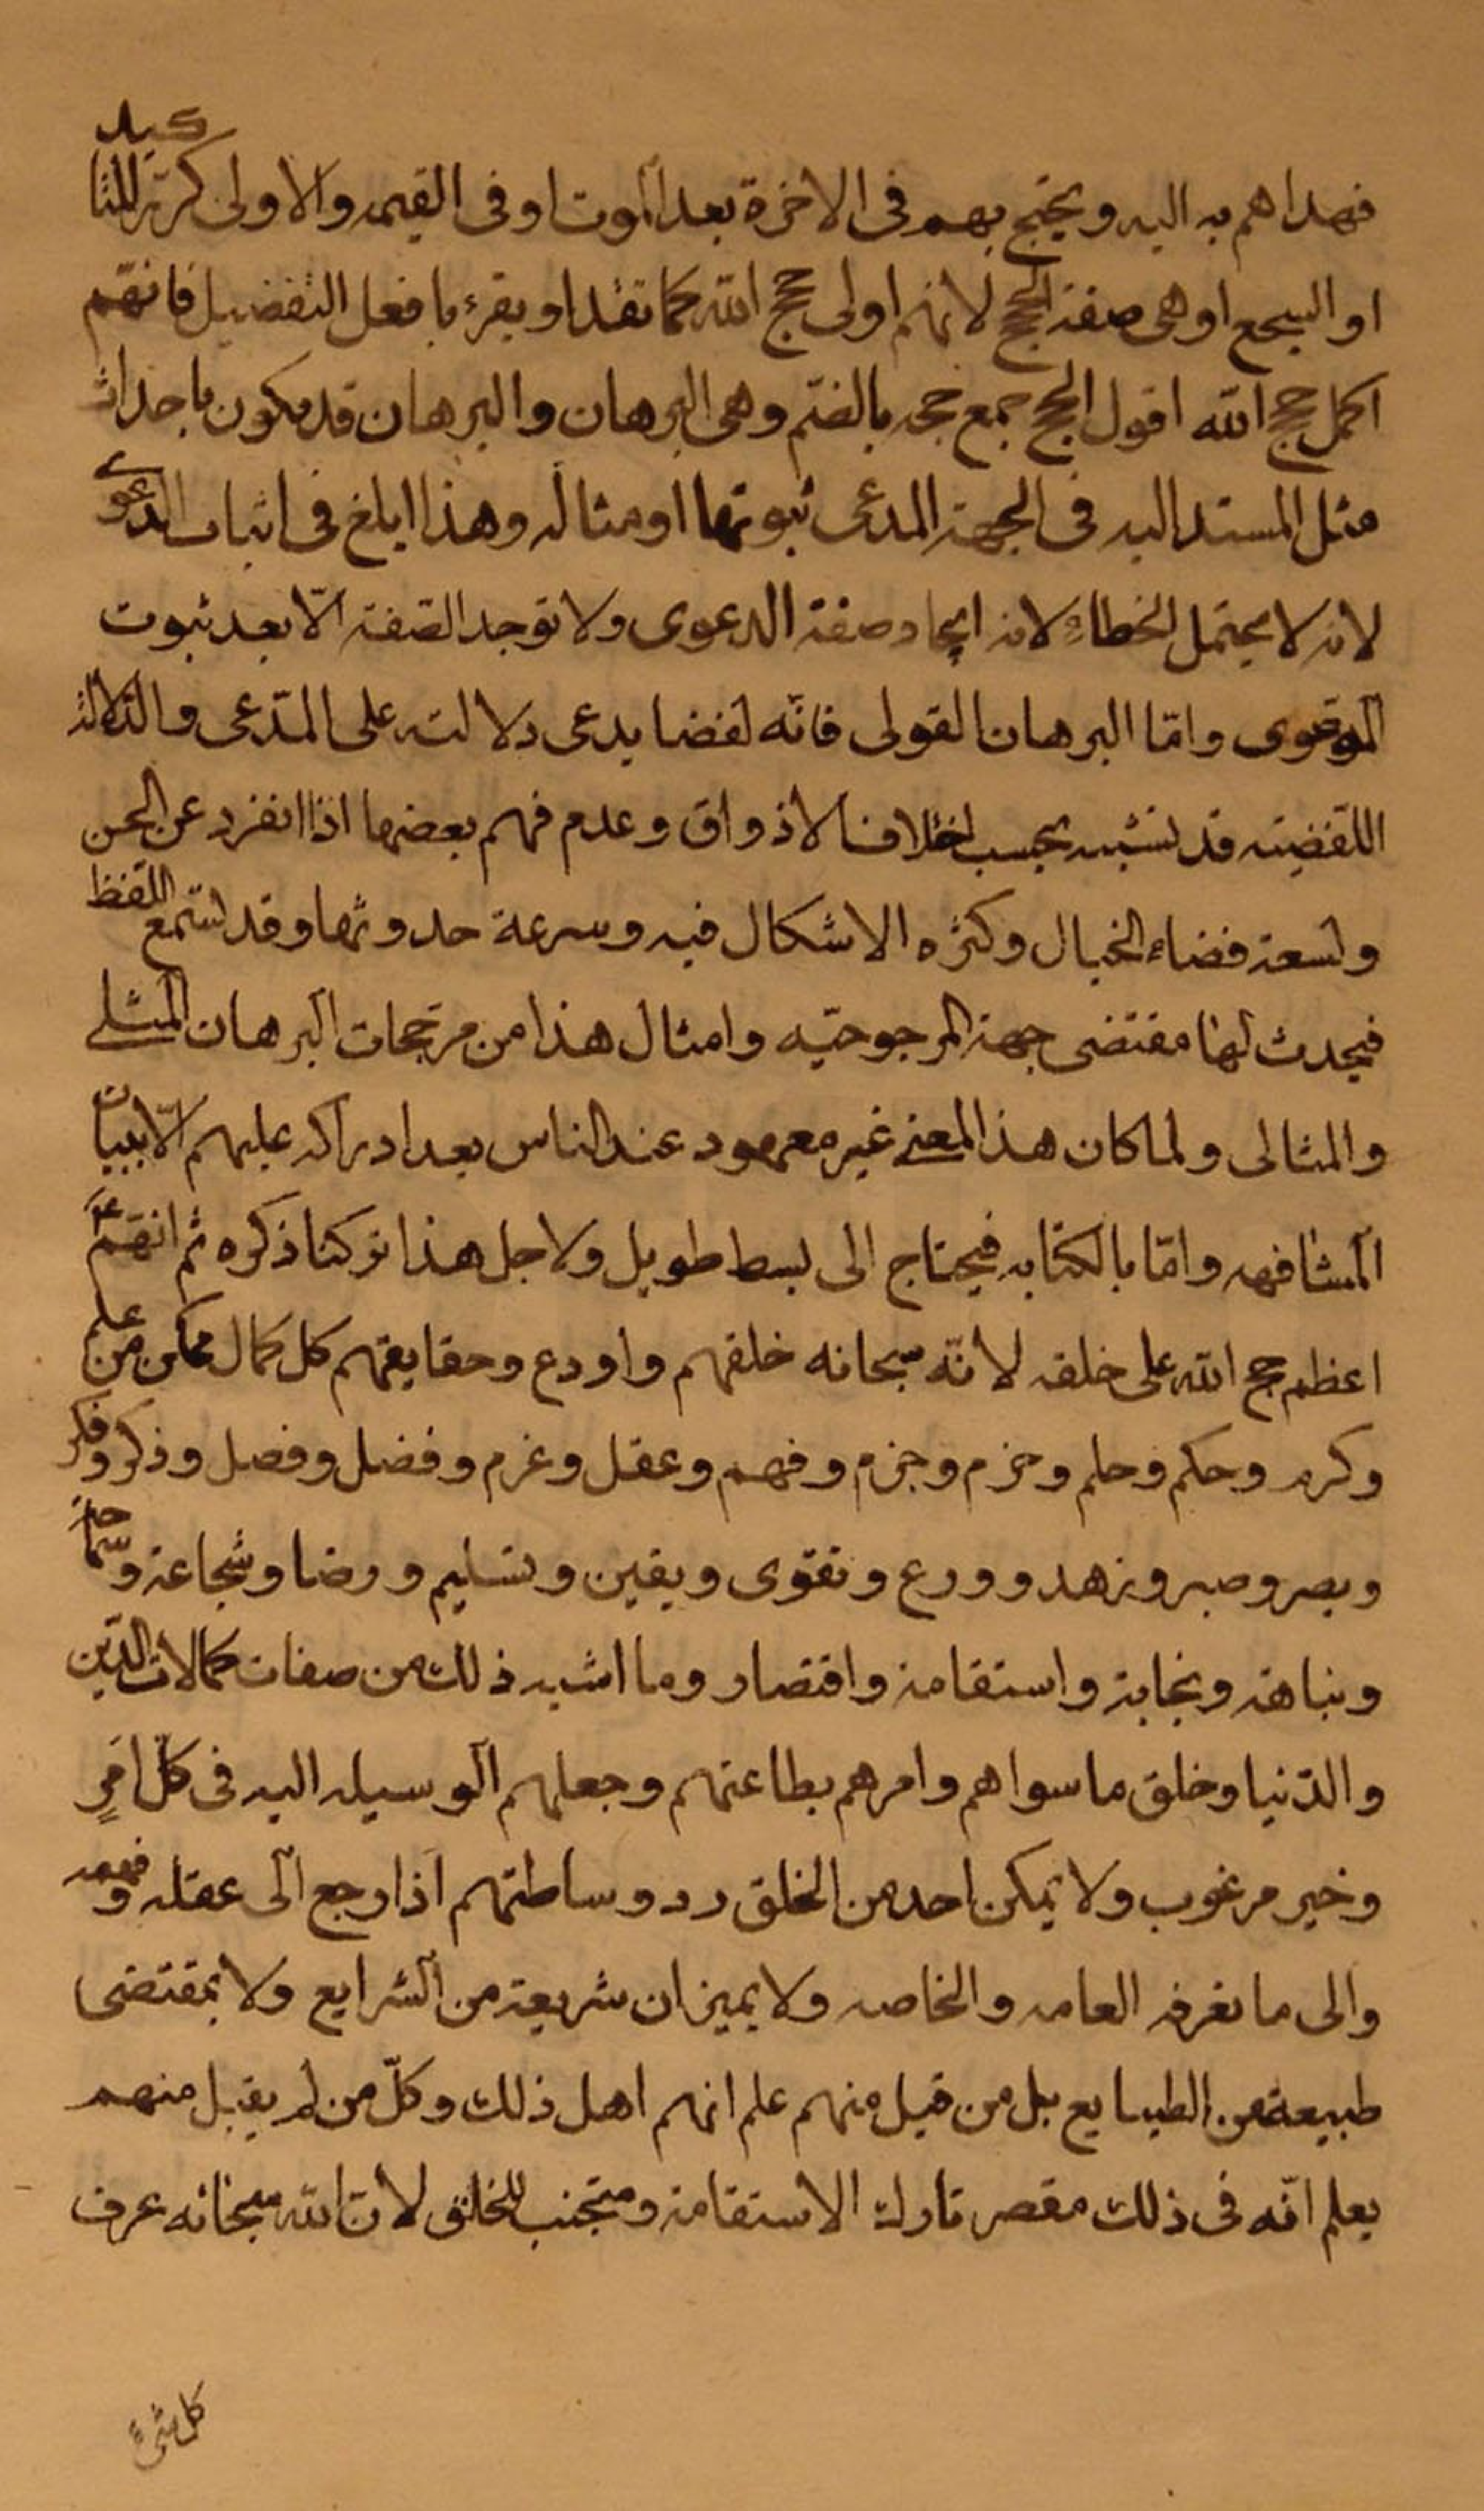 فهداهم به اليه ويحتج بهم فى الاخرة بعد الموت او فى القيمه والاولى كررّ للتاكيد
او السجع او هى صفة الحجج لانهم اولى حجج الله كما تقدا ويقرء بافعل التفضيل فانهّم
اكمل حجج الله اقول الحجج جمع حجه بالضم وهى البرهان والبرهان قد يكون باحداث
مثل المستند اليه فى الجهة المدعى ثبوتها او مثاله وهذا ابلغ فى اثبات الدعوى
لانه لا يحتمل الخطاء لانه ايجاد صفة الدعوى ولا توجد الصّفة الّا بعد ثبوت
الموقوى وامّا البرهان القولى فانّه لفضا يدعى دلالته على المدّعى والدّلالة
اللّفضيّه قد تشبه بحسب اختلاف الاذواق وعدم فهم بعضها اذا انفرد عن الحس
ولسعة فضاء الخيال وكثره الاشكال فيه وسرعة حدوثها وقد تستمع اللّفظ
فيحدث لها مقتضى جهة المرجوحيّه وامثال هذا من مرجّحات البرهان المثلى
والمثالى ولما كان هذا المعنى غير معهود عند الناس بعد ادراكه عليهم الّا ببيان
المشافهه وامّا بالكتابه فيحتاج الى بسط طويل ولاجل هذا تركنا ذكره ثم انهّم ع
اعظم حجج الله على خلقه لانّه سبحانه خلقهم واودع وحقايقهم كل كمال ممكن من علم
وكرم وحكم وحلم وحزم وجزم وفهم وعقل وعزم وفضل وفصل وذكر وفكر
وبصر وصبر وزهد وورع وتقوى ويقين وتسليم ورضا وشجاعة وسماحة
ونباهة ونجابة واستقامة واقتصار وما اشبه ذلك من صفات كمالات الدّين
والدّنيا وخلق ما سواهم وامرهم بطاعتهم وجعلهم الوسيله اليه فى كلّ امرٍ
وخير مرغوب ولا يمكن احد من الخلق رد وساطتهم اذا رجع الى عقله وفهمه
والى ما تعرفه العامه والخاصه ولا بميزان شريعة من الشرايع ولا بمقتضى
طبيعة من الطبايع بل من قبل منهم علم انهم اهل ذلك وكلّ من لم يقبل منهم
يعلم انّه فى ذلك مقصر تارك الاستقامة ومتجنب للخلق لانّ الله سبحانه عرف
كل شئ